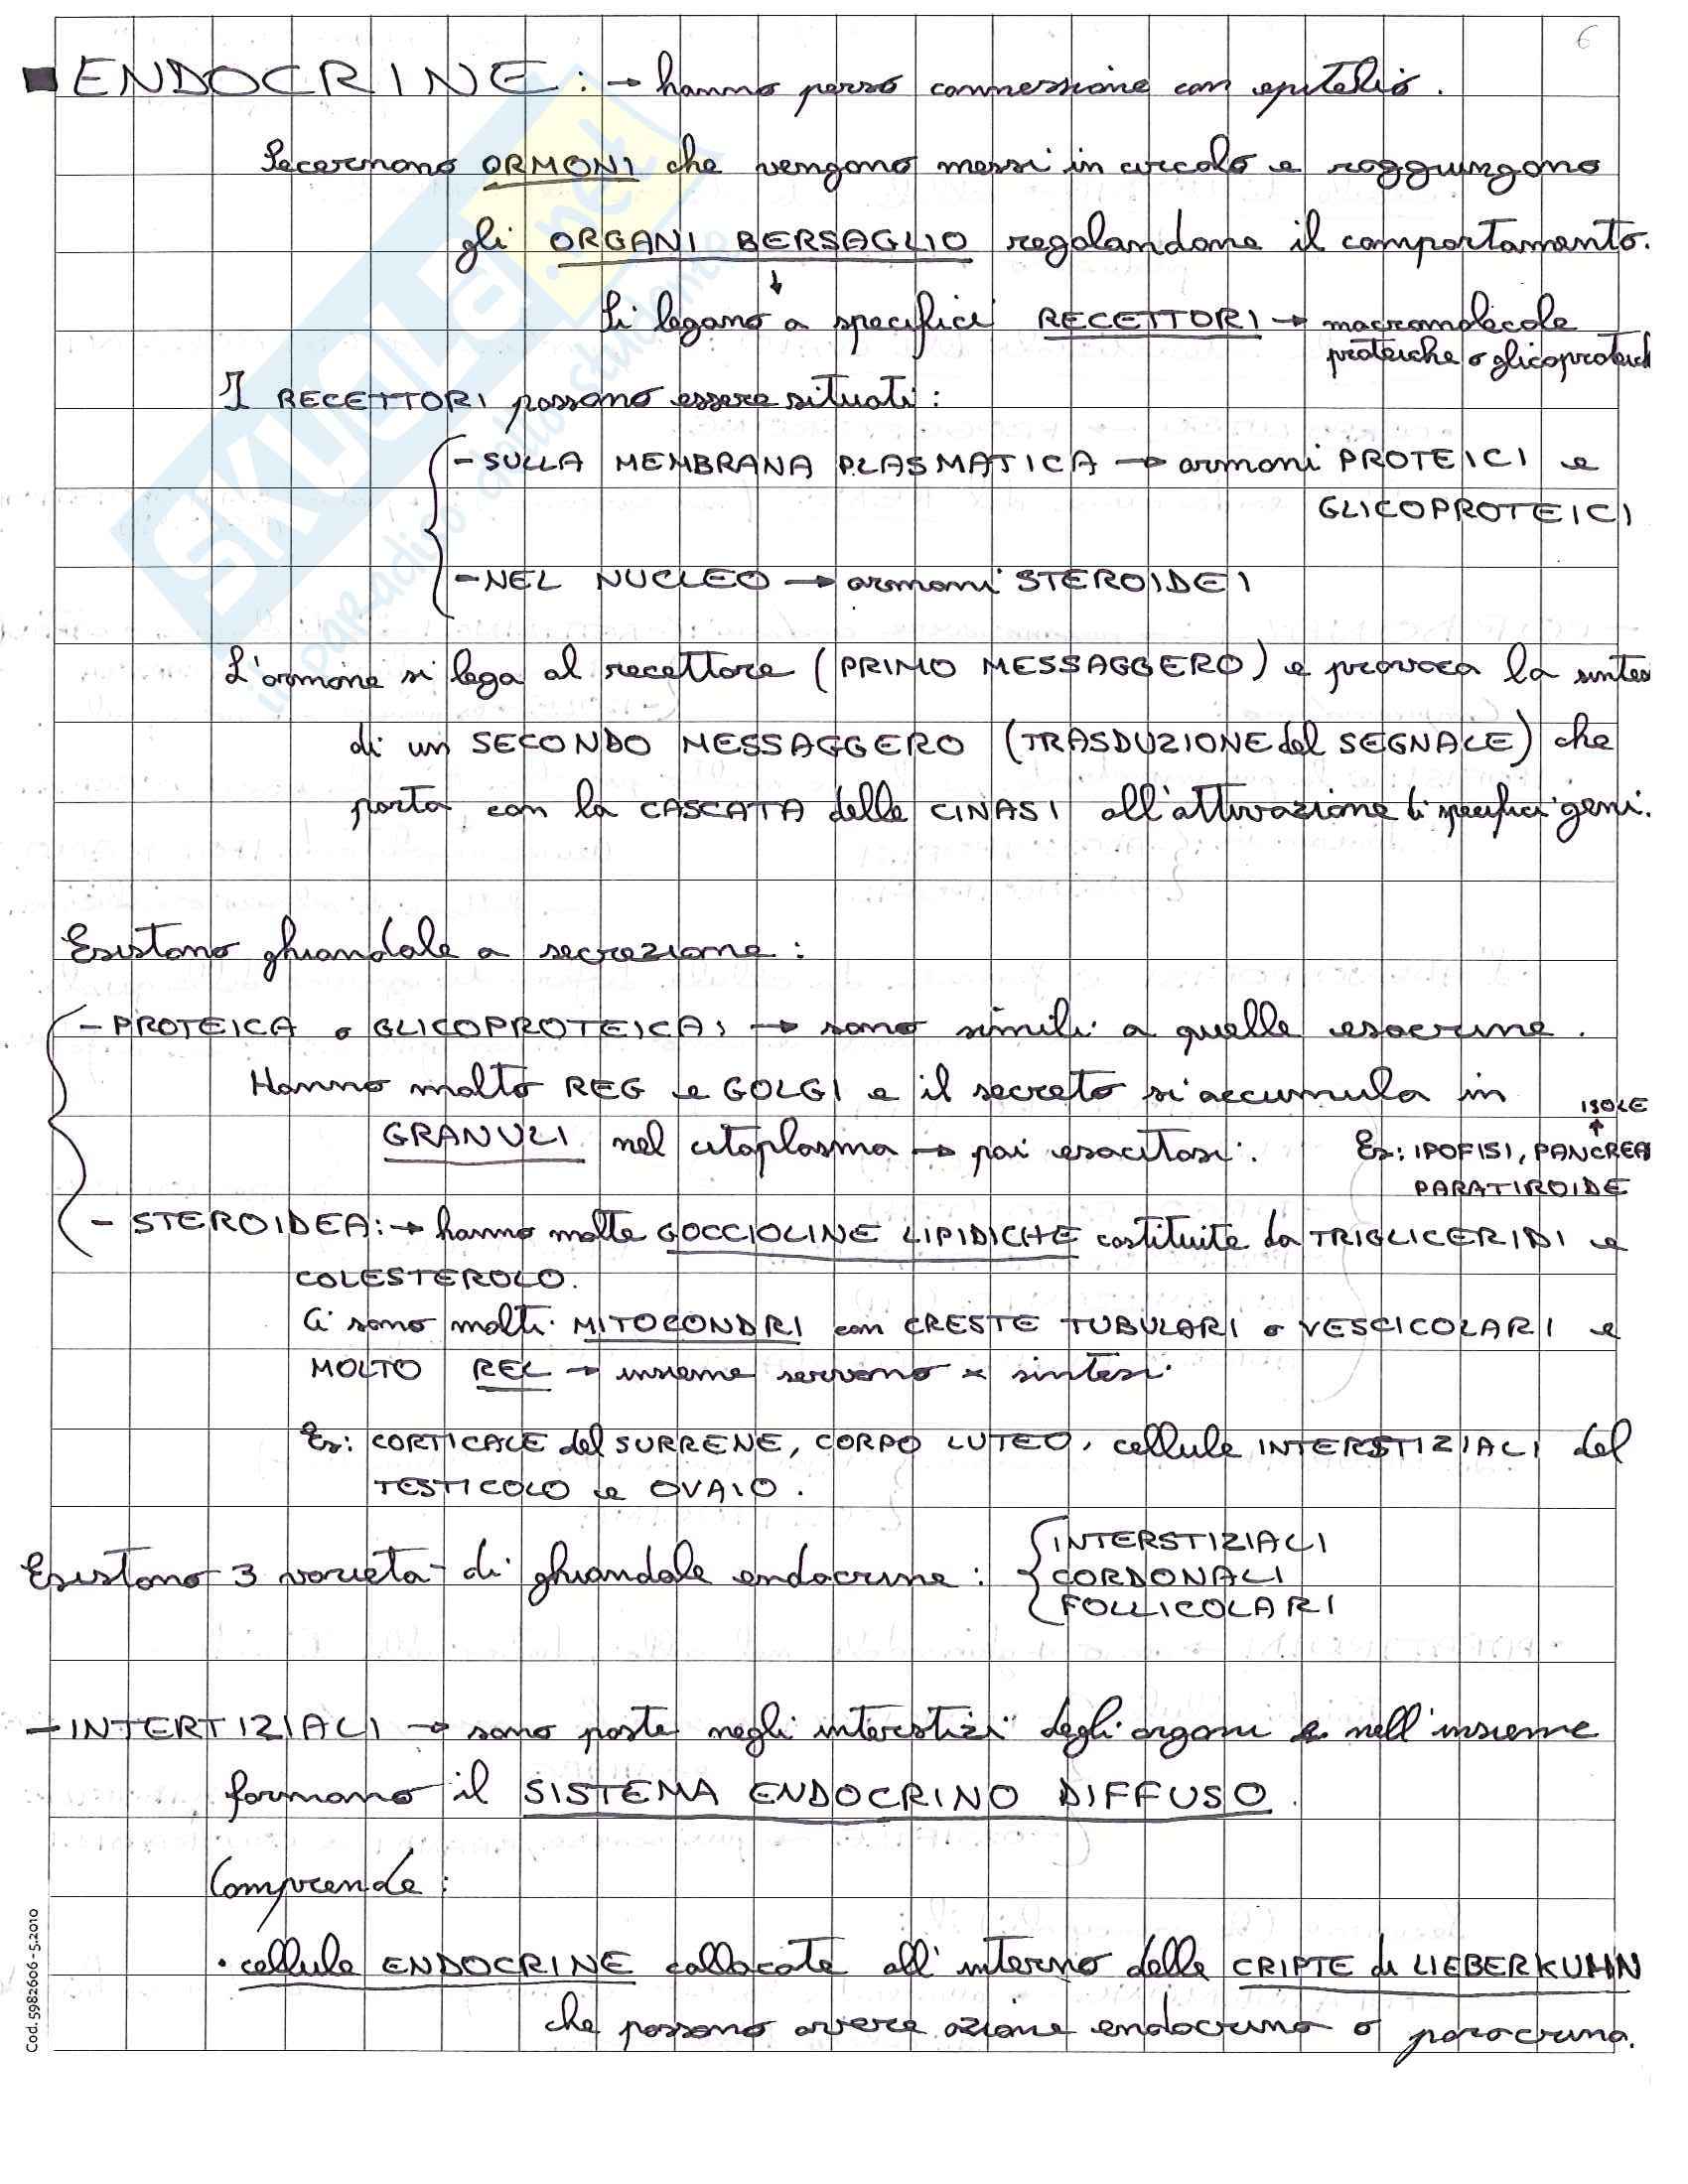 6
ENDOCRINE: → hanno perso connessione con epitelio.
Secernono ORMONI che vengono messi in circolo e raggiungono
gli ORGANI BERSAGLIO regolandone il comportamento.
↓
Si legano a specifici RECETTORI → macromolecole
proteiche o glicoproteich
I RECETTORI possono essere situati:
- SULLA MEMBRANA PLASMATICA → ormoni PROTEICI e
GLICOPROTEICI
- NEL NUCLEO → ormoni STEROIDEI
L'ormone si lega al recettore (PRIMO MESSAGGERO) e provoca la sintes
di un SECONDO MESSAGGERO (TRASDUZIONE del SEGNALE) che
porta con la CASCATA delle CINASI all'attivazione di specifici geni.
Esistono ghiandole a secrezione:
- PROTEICA o GLICOPROTEICA: → sono simili a quelle esocrine.
Hanno molto REG e GOLGI e il secreto si accumula in
ISOLE
↑
GRANULI nel citoplasma → poi esocitosi. Es: IPOFISI, PANCREA
PARATIROIDE
- STEROIDEA: → hanno molte GOCCIOLINE LIPIDICHE costituite da TRIGLICERIDI e
COLESTEROLO.
Ci sono molti MITOCONDRI con CRESTE TUBULARI o VESCICOLARI e
MOLTO REL → insieme servono x sintesi
Es: CORTICALE del SURRENE, CORPO LUTEO, cellule INTERSTIZIALI del
TESTICOLO e OVAIO.
Esistono 3 varietà di ghiandole endocrine: INTERSTIZIALI
CORDONALI
FOLLICOLARI
- INTERTIZIALI → sono poste negli interstizi degli organi e nell'insieme
formano il SISTEMA ENDOCRINO DIFFUSO.
Comprende:
• cellule ENDOCRINE collocate all'interno delle CRIPTE di LIEBERKUHN
che possono avere azione endocrina o paracrina.
Cod. 5982606 - 5.2010
SKUOLA.net
il paradiso dello studente